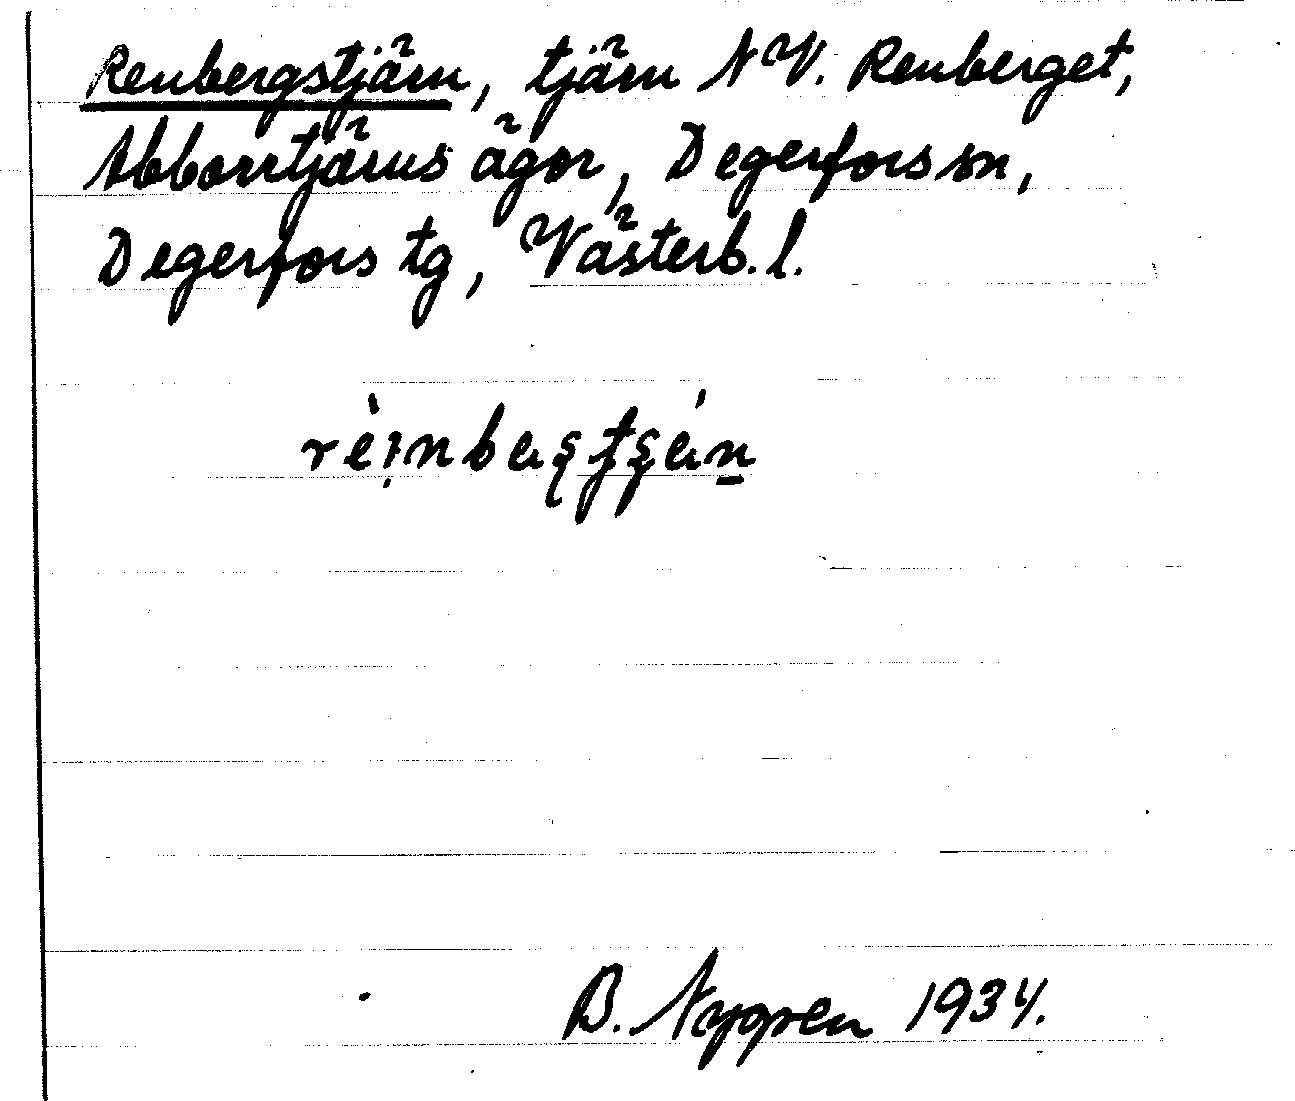 Renbergstjärn, tjärn NV. Renberget,
Abborrtjärns ägor, Degerfors sn,
Degerfors tg, Västerb. l.
B. Nygren 1934.